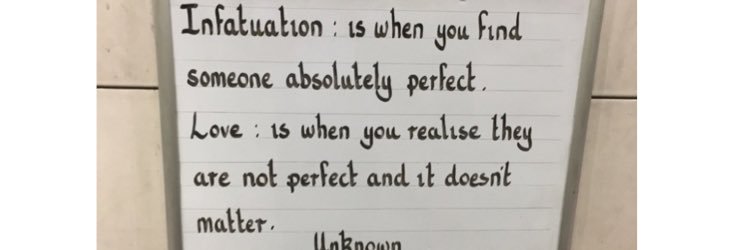 Infatuation : is when you find
someone absolutely perfect.
Love : is when you realise they
are not perfect and it doesn't
matter.
Unknown